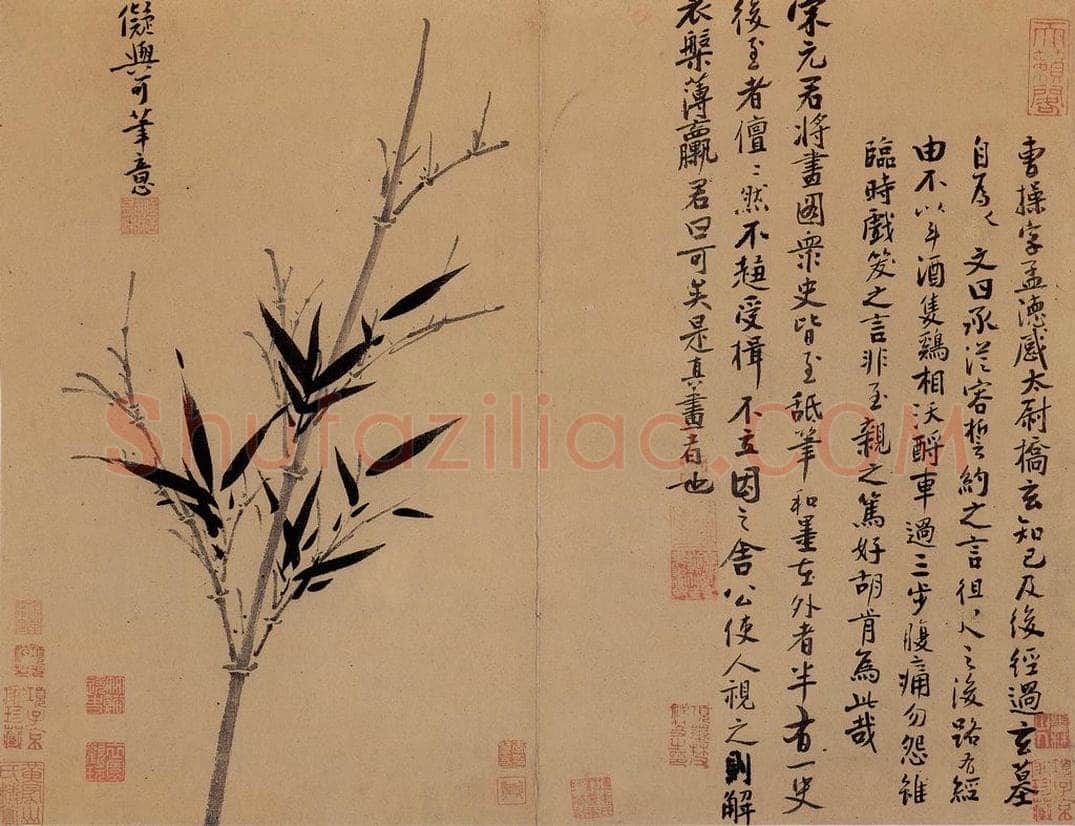 天籟閣
曹操字孟德感太尉橋玄知己及後經過玄墓
自為文曰承從容誓約之言徂之後路有經
由不以斗酒隻鷄相沃酹車過三步腹痛勿怨雖
臨時戲笑之言非至親之篤好胡肯為此哉
宋元君將畫圖衆史皆至舐筆和墨在外者半有一史
後至者儃〻然不趨受揖不立因之舍公使人視之則解
衣槃薄臝君曰可矣是真畫者也
儗與可筆意
項子京家珍藏
Shufaziliao.COM